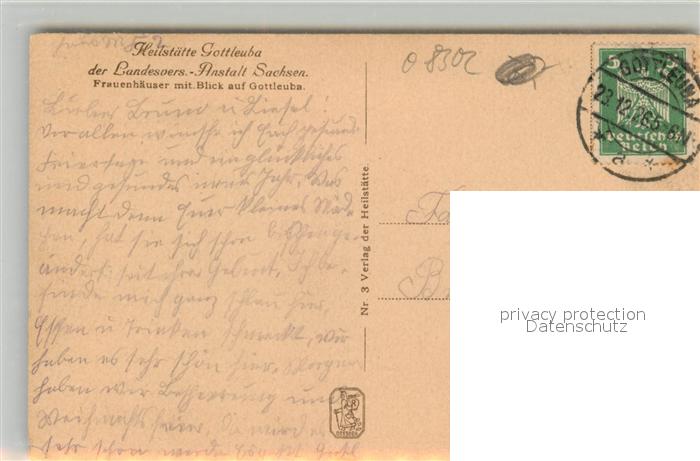 Heilstätte Gottleuba
der Landesvers.-Anstalt Sachsen.
Frauenhäuser mit Blick auf Gottleuba.
0 8302
5
GOTTLEUBA
23.12.26
Deutsches
Reich
a
Lieber Bruno u Liesel!
Vor allen wünsche ich Euch gesunde
Feiertage und ein glückliches
und gesundes neues Jahr. Was
macht denn Euer kleines Mäd-
chen, hat sie sich schon
seit ihrer Geburt. Ich be-
finde mich ganz hier,
Essen u Trinken schmeckt, wir
haben es sehr schön hier, Morgen
haben wir Bescherung und
Weihnachtsfeier,
sehr schön werden
Nr 3 Verlag der Heilstätte.
privacy protection
Datenschutz